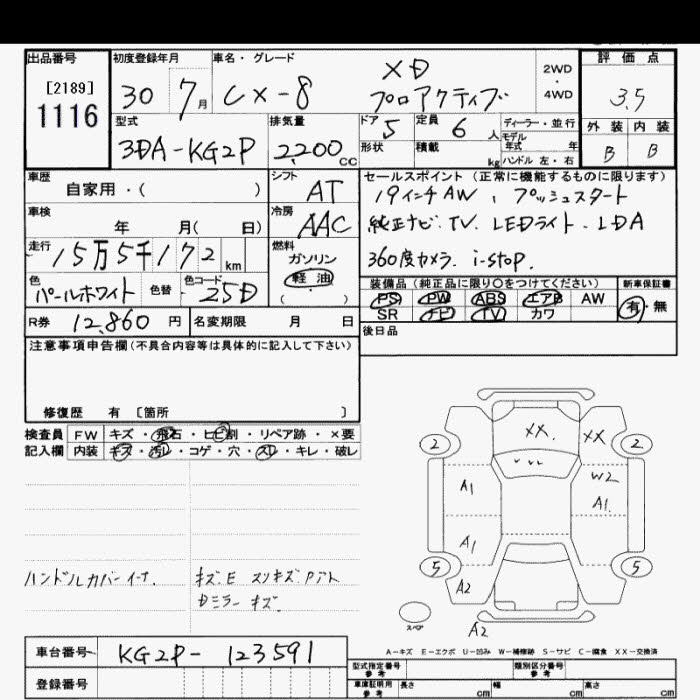 出品番号
[2189]
1116
初度登録年月
30 7月
車名・グレード
CX-8
XD
プロアクティブ
2WD
・
4WD
評価点
3.5
外装 内装
B B
型式
3DA-KG2P
排気量
2,200 CC
ドア 5
定員 6人
形状
積載 kg
ディーラー・並行
モデル
年式 年
ハンドル 左・右
車歴
自家用・( )
シフト
AT
車検
年 月( 日)
冷房
AAC
走行
15万5千172 km
燃料
ガソリン
軽油
( )
色
パールホワイト
色替
色コード
25D
R券 12,860 円
名変期限 月 日
セールスポイント(正常に機能するものに限ります)
19インチAW、プッシュスタート
純正ナビ.TV.LEDライト.LDA
360度カメラ.i-stop.
装備品(純正品に限り〇をつけてください)
PS PW ABS エアB AW
SR ナビ TV カワ
新車保証書
有・無
後日品
注意事項申告欄(不具合内容等は具体的に記入して下さい)
修復歴 有 〔箇所 〕
検査員
記入欄
FW キズ・飛石・ヒビ割・リペア跡・×要
内装 キズ・汚レ・コゲ・穴・スレ・キレ・破レ
ハンドルカバーイナ.
キズ.E スリキズ.Pアト
Dミラーキズ.
XX.
XX
2
2
A1
W2
A1.
A1
5
5
A2
A2
スペア
A-キズ E-エクボ U-凹み W-補修跡 S-サビ C-腐食 XX-交換済
車台番号
KG2P-123591
登録番号
型式指定番号
参考
類別区分番号
参考
車庫証明用
参考
長さ cm
幅 cm
高さ cm